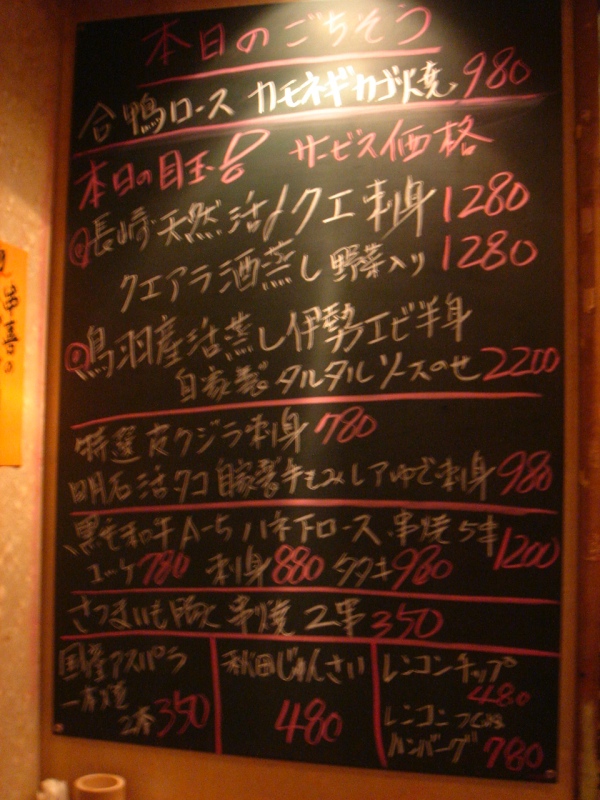 本日のごちそう
合鴨ロース カモネギカゴ焼 980
本日の目玉品 サービス価格
長崎・天然活〆クエ刺身 1280
クエアラ酒蒸し野菜入り 1280
鳥羽産活蒸し伊勢エビ半身
自家養タルタルソースのせ 2200
特選 皮クジラ刺身 780
明石活タコ 自家養手もみレアゆで刺身 980
黒毛和牛A-5ハネ下ロース 串焼 5本 1200
ユッケ 780 刺身 880 タタキ 980
さつまいも豚 串焼 2串 350
国産アスパラ
一本焼
2本 350
秋田じゅんさい
480
レンコンチップ
480
レンコンつくね
ハンバーグ 780